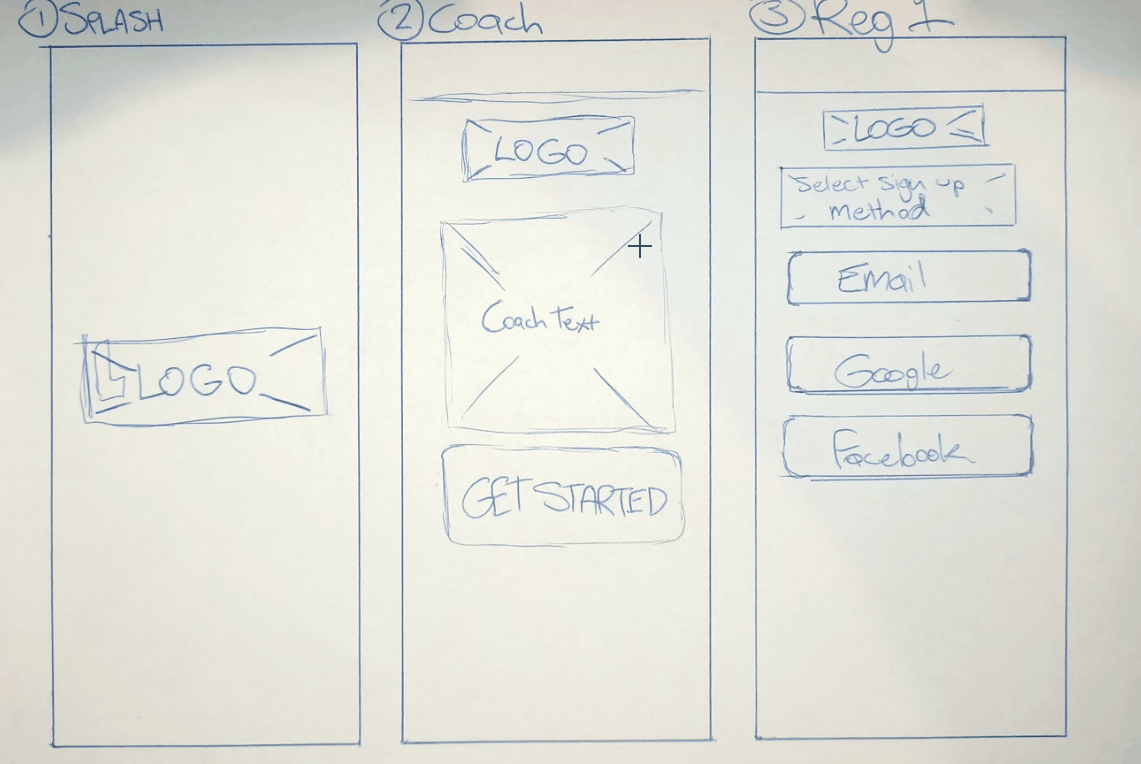 1 SPLASH
LOGO
2 Coach
LOGO
Coach Text
GET STARTED
3 Reg 1
LOGO
Select Sign up
method
Email
Google
Facebook